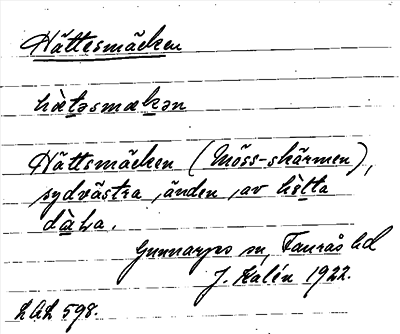 Hättesmäcken
hàtəsmækən
Hättsmäcken (Möss-skärmen),
sydvästra änden av hètta
dàLa.
Gunnarps sn, Faurås hd
J. Kalén 1922.
LAL 598.